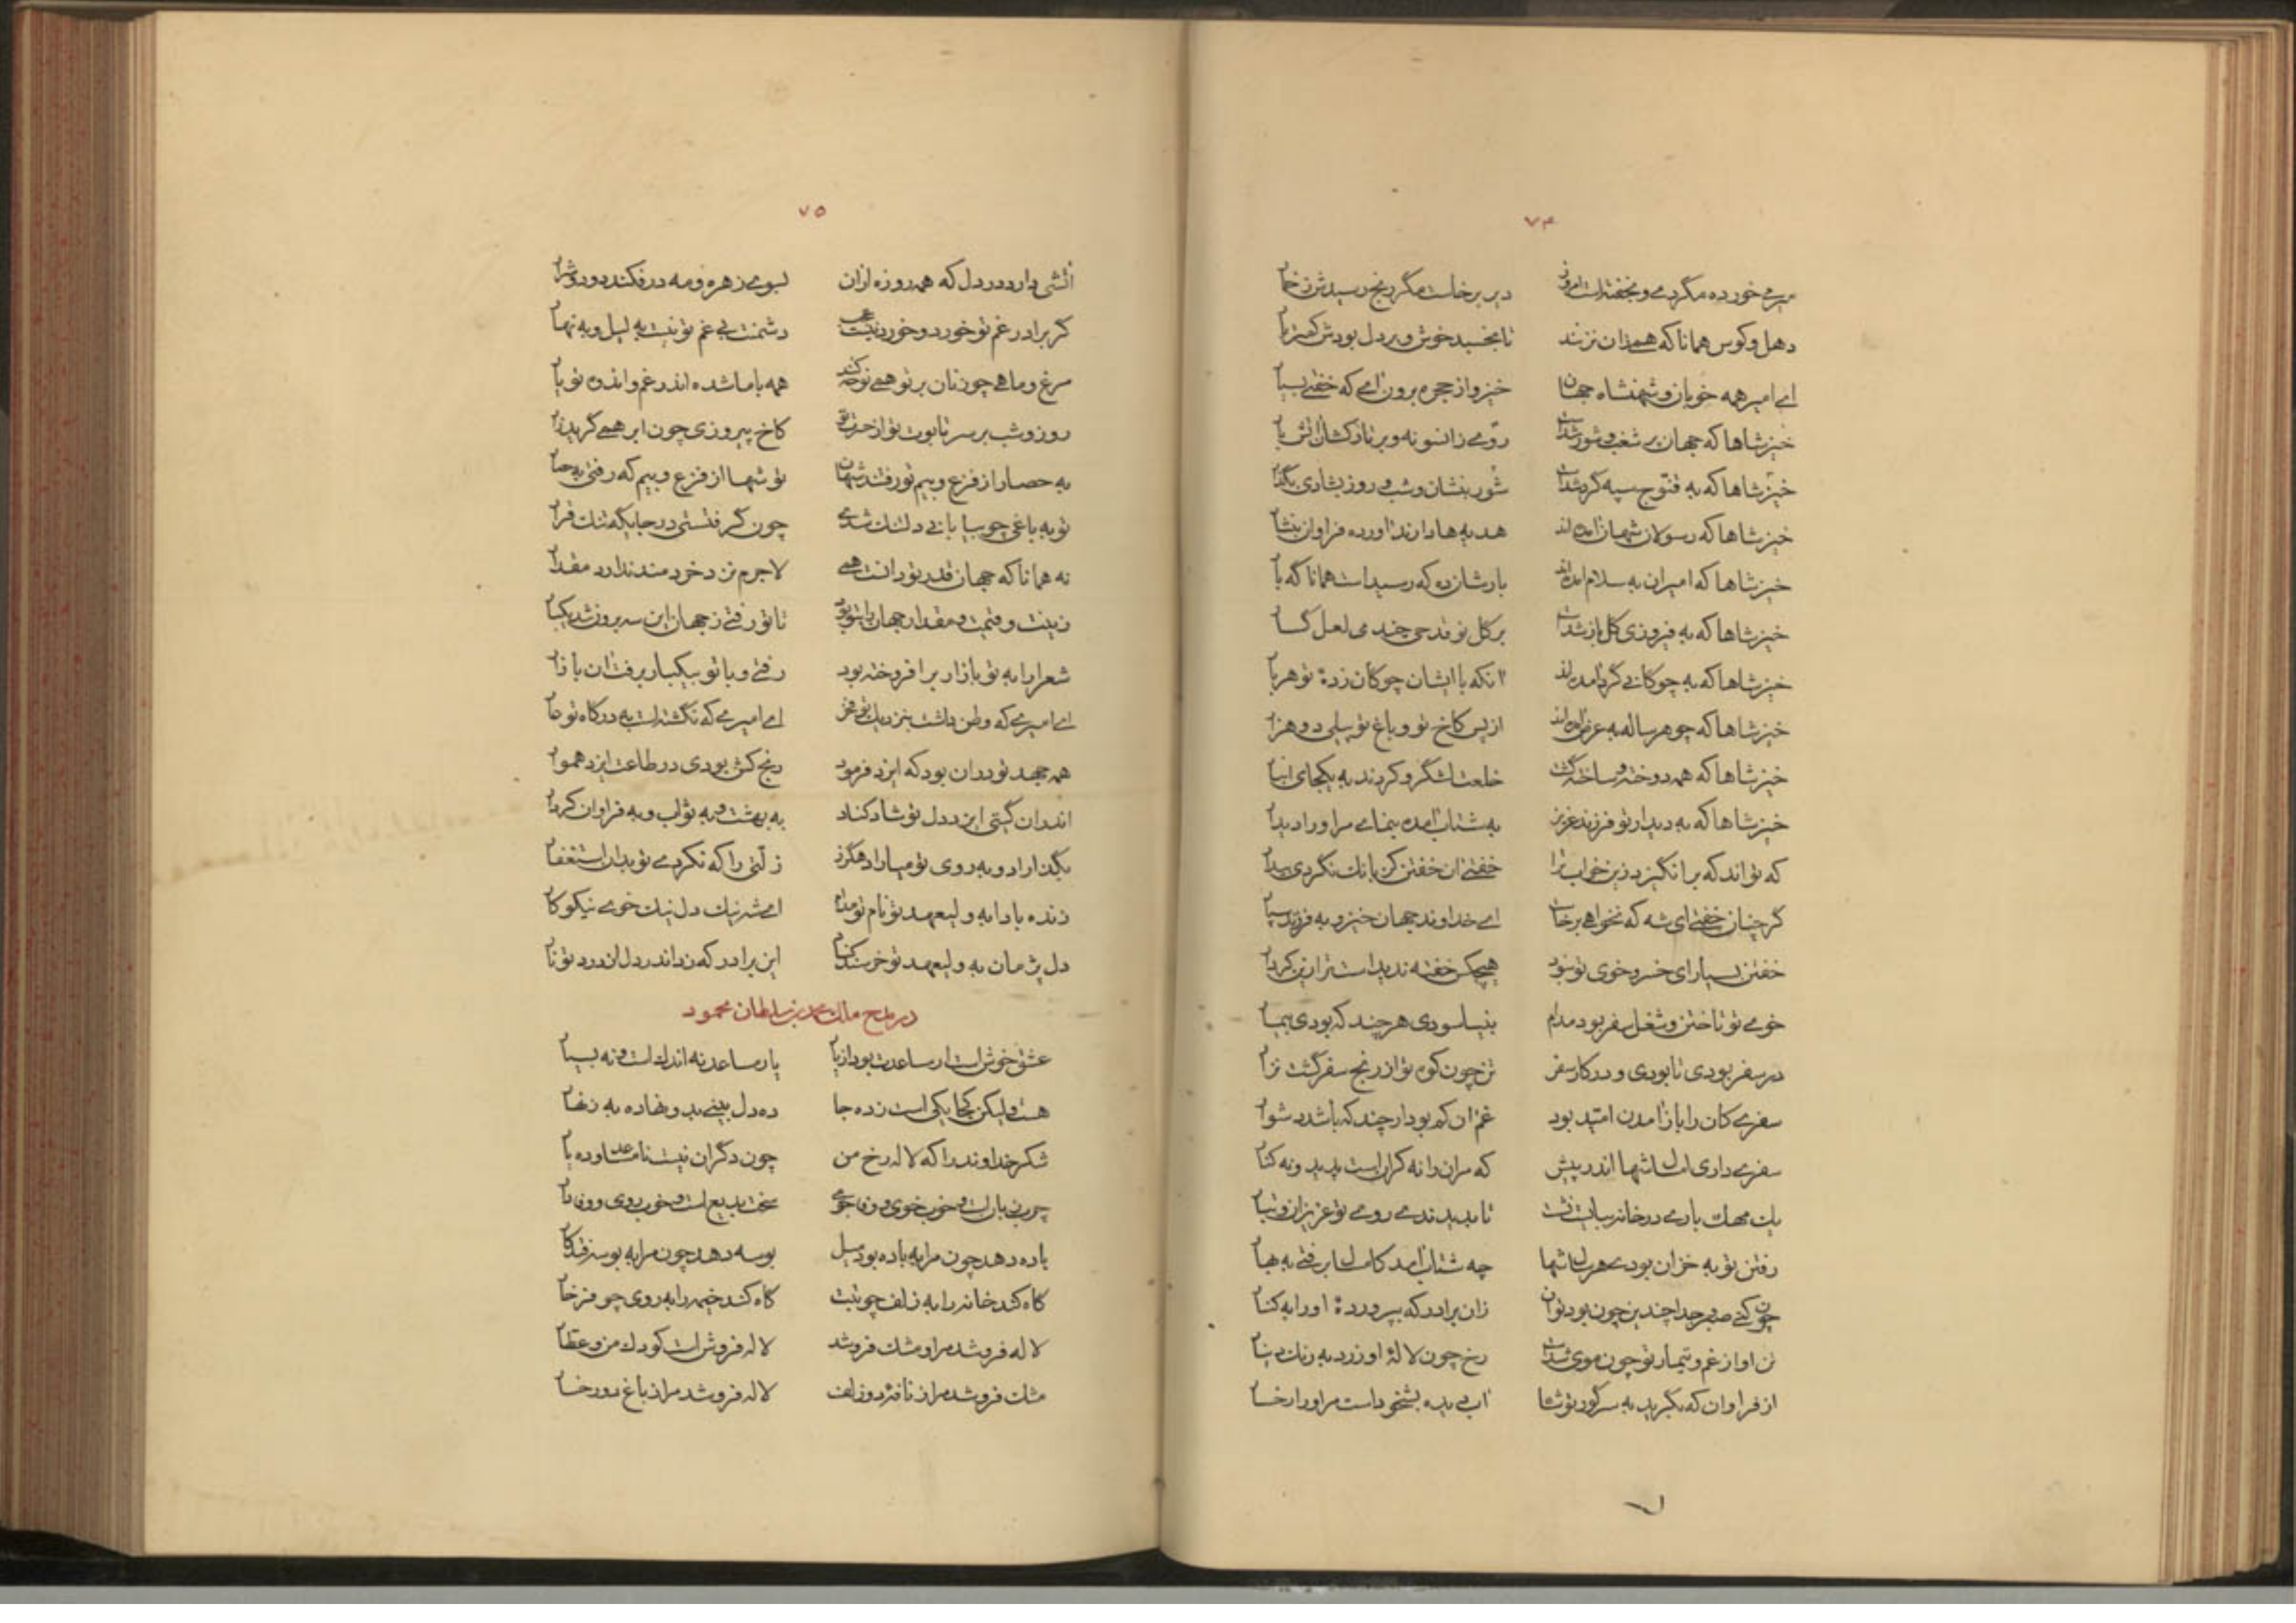 ۷۴
میر می خورده مگر دی و بخفتست امروز دیر برخاست مگر رنج رسیدش ز خمار
دهل و کوس همانا که همی زان نزنند تا بخسبد خوش و بر دل بودش کمتر بار
ای امیر همه خوبان و شهنشاه جهان خیز و از حجره برون ای که خفتی بسیار
خیز شاها که جهان پر شغب و شور شدست رومی زانسو نه و بر تاز کشان اتش بار
خیز شاها که به فتوج سپه گرد شدست شور بنشان و شب و روز بشادی بگذار
خیز شاها که رسولان شهان امده اند هدیه ها دارند اورده فراوان بنثار
خیز شاها که امیران به سلام امده اند بارشان ده که رسیدست همانا گه بار
خیز شاها که به فیروزی گل باز شدست بر گل نو قدحی چند می لعل گسار
خیز شاها که به چوکانی گرد امده اند انکه با ایشان چوکان زدهٔ تو هر بار
خیز شاها که چو هر ساله به عرض امده اند از پس کاخ تو و باغ تو پیلی دو هزار
خیز شاها که همه دوخته و ساخته گشت خلعت لشگر و کردند به یکجای انبار
خیز شاها که به دیدار تو فرزند عزیز به شتاب امده بنمای مر او را دیدار
که تواند که برانگیزد زین خواب ترا خفتی ان خفتن کز بانک نگردی بیدار
گر چنان خفتی ای شه که نخواهی برخاست ای خداوند جهان خیز و به فرزند سپار
خفتن بسیار ای خسرو خوی تو نبود هیچکس خفته ندیدست ترا زین کردار
خوی تو تاختن و شغل سفر بود مدام بنیاسودی هر چند که بودی بیمار
در سفر بودی تا بودی و در کار سفر تن چون کوه تو از رنج سفر گشت نزار
سفری کان را باز امدن امید بود غم ان کم بود ار چند که باشد دشوار
سفری داری امسال شها اندر پیش که مر ان را نه کرانست پدید و نه کنار
یک مهک باری در خانه ببایست نشست تا بدیدندی روی تو عزیزان و تبار
رفتن تو به خزان بودی هر سال شها چه شتاب امد کامسال برفتی به بهار
چون کنی صبر و جدا چندین چون بود توان زان برادر که بپروردهٔ او را به کنار
تن او از غم و تیمار تو چون موی شدست رخ چون لالهٔ او زرد به رنگ دینار
از فراوان که بگرید به سر گور تو شاه اب دیده بشخودست مر او را رخسار
۷۵
اتشی دارد در دل که همه روزه ازان بسوی زهره و مه در فکند دود و شرار
گر برادر غم تو خورد و خورد نیست عجب دشمنت بی غم تو نیست به لیل و به نهار
مرغ و ماهی چو زنان بر تو همی نوحه کنند همه با ما شده اندر غم و انده تو یار
روز و شب بر سر تابوت تو از حسرت تو کاخ پیروزی چون ابر همی گرید زار
به حصار از فزع و بیم تو رفتند شهان تو شها از فزع و بیم که رفتی به حصار
تو به باغی چو بیابانی دلتنگ شدی چون گرفتستی در جایگه تنک قرار
نه همانا که جهان قدر تو دانست همی لاجرم نزد خردمند ندارد مقدار
زینت و قیمت و مقدار جهان را به تو بود تا تو رفتی ز جهان این سه برون شد یکبار
شعرا را به تو بازار برافروخته بود رفتی و با تو بیکبار برفت ان بازار
ای امیری که وطن داشت بنزدیک تو فخر ای امیری که نگشتست به درگاه تو عار
همه جهد تو دران بود که ایزد فرمود رنج کش بودی در طاعت ایزد هموار
اندران گیتی ایزد دل تو شاد کناد به بهشت و به ثواب و به فراوان کردار
بگذاراد و به روی تو میاراد هگرز زلتی را که نکردی تو بدان استغفار
زنده بادا به ولیعهد تو نام تو مدام ای شه نیک دل نیک خوی نیکو کار
دل پژمان به ولیعهد تو خرسند کناد این برادر که ز د اندر دل از درد تو نار
در مدح ملک محمد بن سلطان محمود
عشق خوش است ار مساعدت بود از یار یار مساعد نه اندکست و نه بسیار
هست ولیکن کجا یکی است زده جا ده دل بینی بدو نهاده به زنهار
شکر خداوند را که لاله رخ من چون دگران نیست نامساعد و یار
چرب زبان است و خوب خوی و وفا جوی سخت بدیع است و خوب روی و وفادار
باده دهد چون مرا به باده بود میل بوسه دهد چون مرا به بوسه فتد کار
کاه کند خانه را به زلف چو تبت کاه کند خیمه را به روی چو فرخار
لاله فروشد مرا و مشک فروشد لاله فروش است کودک من و عطار
مشک فروشد مرا ز نافهٔ دو زلف لاله فروشد مرا ز باغ دو رخسار